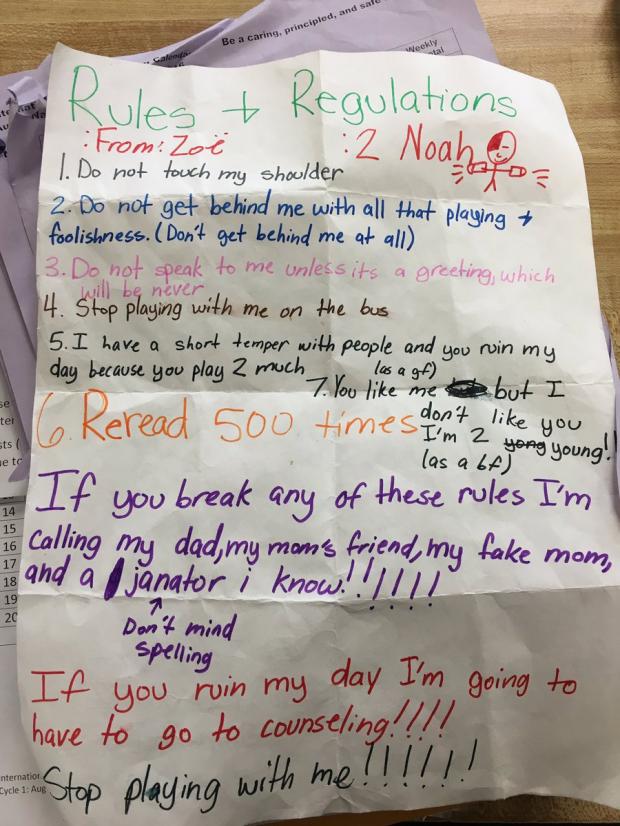 Be a caring, principled, and safe
Calendar
Weekly
Rules + Regulations
:From: Zoë :2 Noah
1. Do not touch my shoulder
2. Do not get behind me with all that playing +
foolishness. (Don't get behind me at all)
3. Do not speak to me unless its a greeting, which
will be never
4. Stop playing with me on the bus
5. I have a short temper with people and you ruin my
day because you play 2 much
6. Reread 500 times
(as a gf)
7. You like me but I
don't like you
I'm 2 yong young!!
(as a bf)
If you break any of these rules I'm
calling my dad, my mom's friend, my fake mom,
and a janator i know!!!!!!!
↑
Don't mind
spelling
If you ruin my day I'm going to
have to go to counseling!!!!
Stop playing with me!!!!!!!
14
15
16
17
18
19
20
Cycle 1: Aug